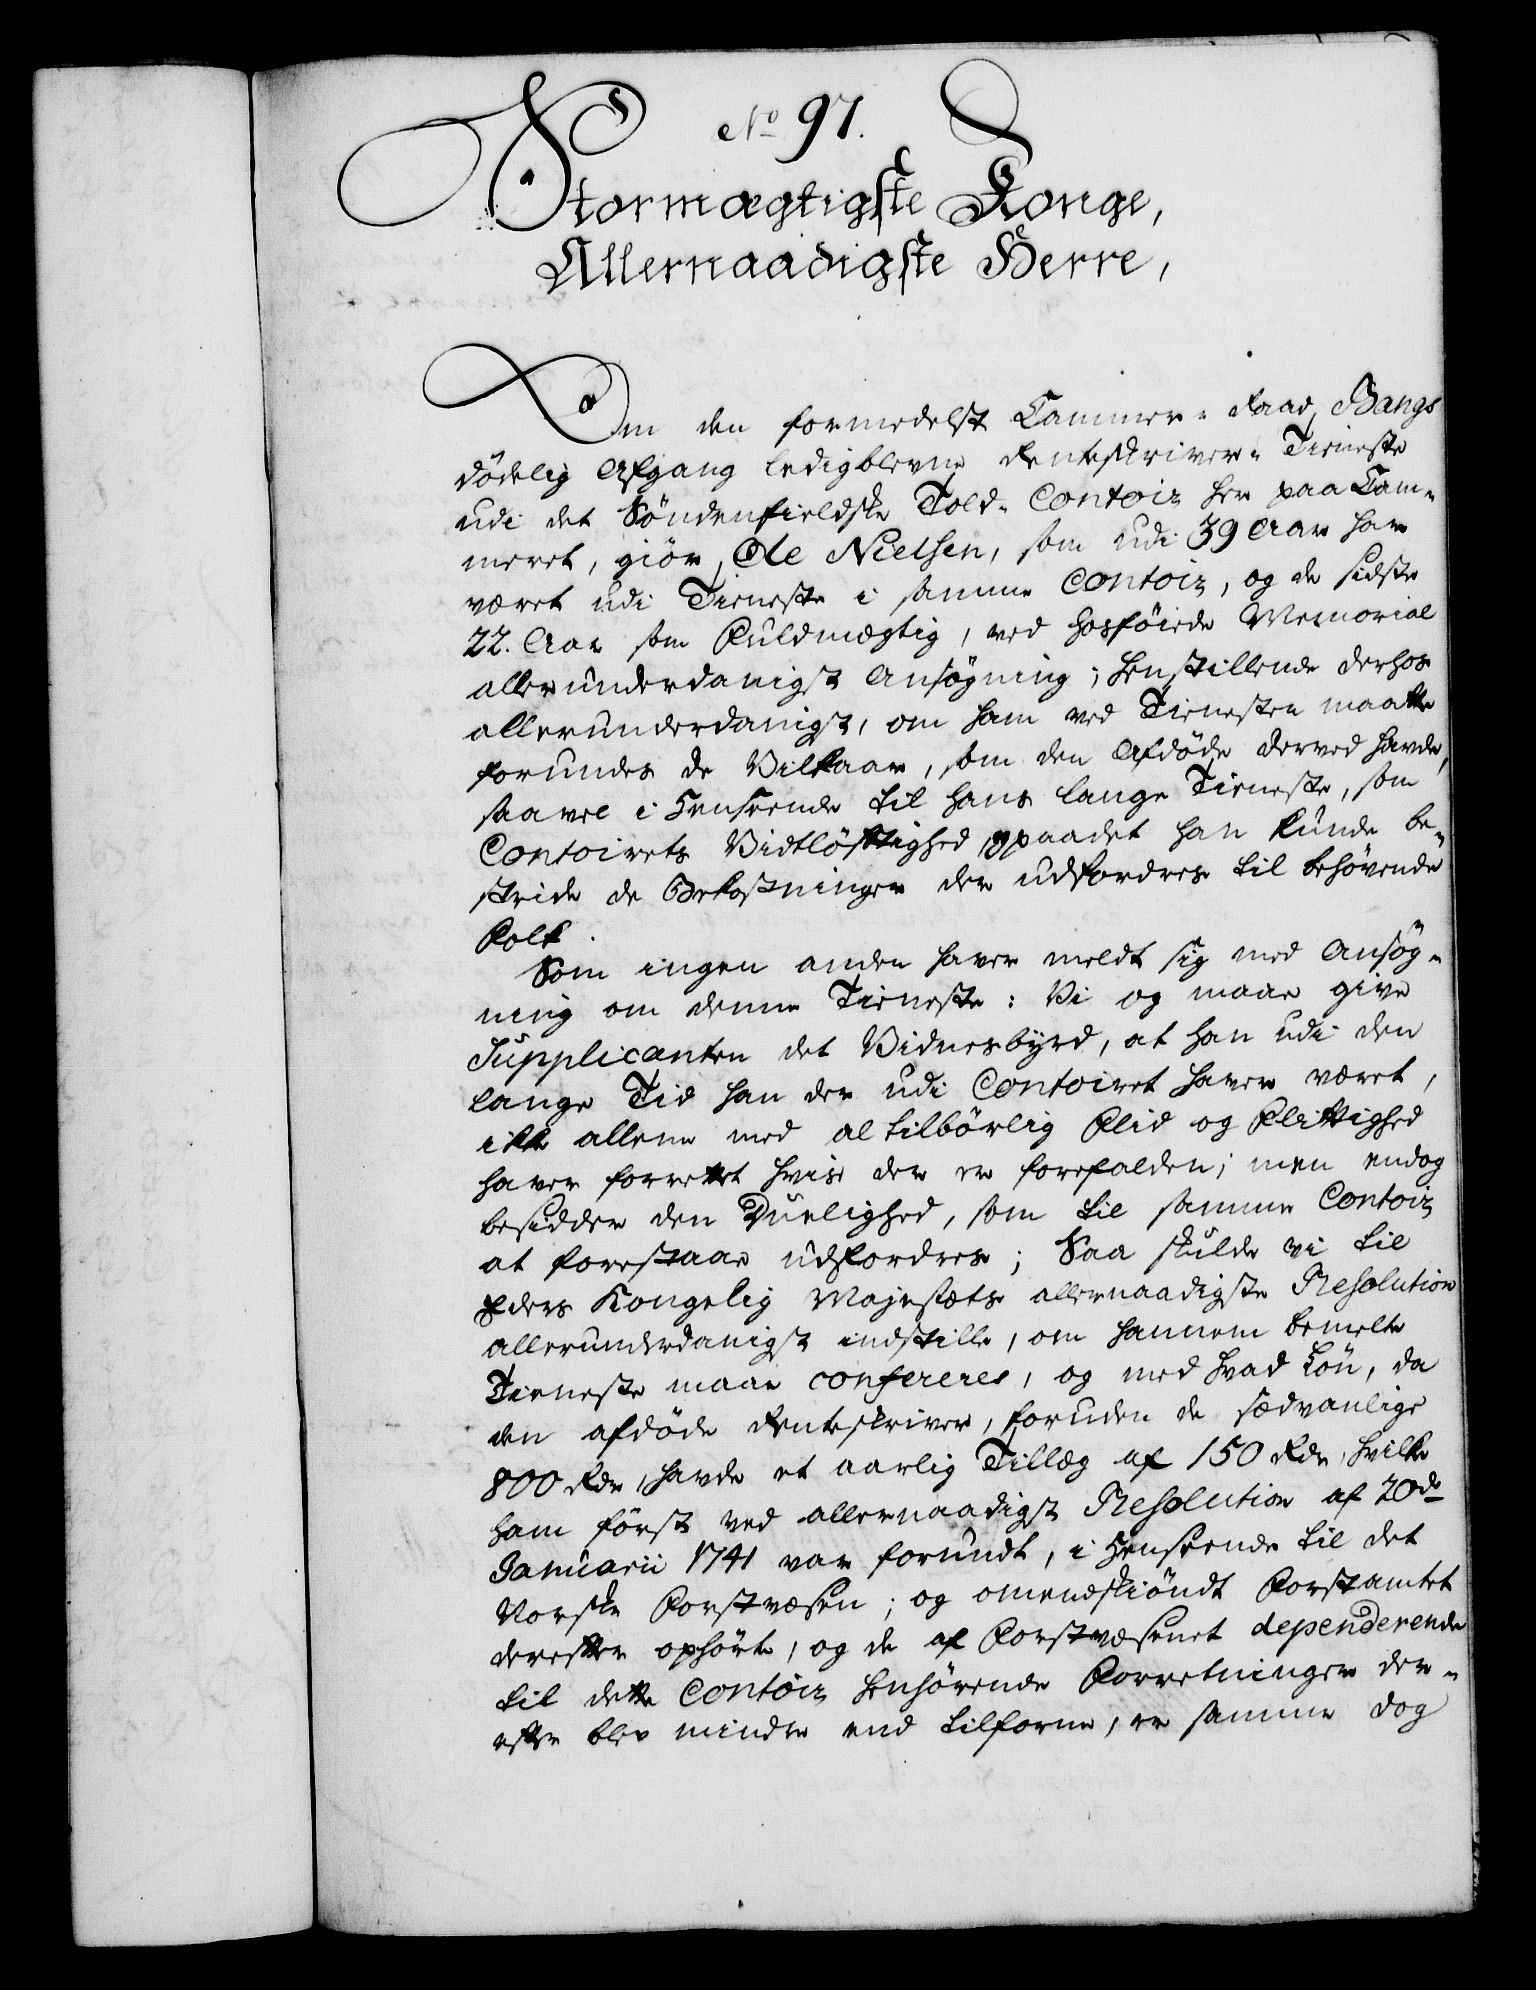 No 97.
Stormægtigste Konge,
Allernaadigste Herre,
Om den formedelst Cammer-Raad, Bangs
dödelig Afgang ledigblevne Renteskriver-Tieneste
udi det Söndenfieldske Told-Contoir her paa Cam-
meret, giör, Ole Nielsen, som udi 39 Aar har
været udi Tieneste i samme Contoir, og de sidste
22. Aar som Fuldmægtig, ved hosföiede Memorial
allerunderdanigst Ansögning; henstillende derhos
allerunderdanigst, om ham ved Tienesten maatte
forundes de Vilkaar, som den Afdöde derved havde,
saavel i Henseende til hans lange Tieneste, som
Contoirets Vidtlöftighed, paadet han kunde be-
stride de Bekostninger der udfordres til behövende
Folk.
Som ingen anden haver meldt sig med Ansög-
ning om denne Tieneste: Vi og maae give
Supplicanten det Vidnesbyrd, at han udi den
lange Tid han der udi Contoiret haver været,
ikke allene med al tilbörlig Fliid og Flittighed
haver forrettet hvis der er forefalden; men endog
besidder den Duelighed, som til samme Contoir
at forestaae udfordres; Saa skulde vi til
Eders Kongelig Majestæts allernaadigste Resolution
allerunderdanigst indstille, om hannem bemelte
Tieneste maae confereres, og med hvad Lön, da
den afdöde Renteskriver, foruden de sædvanlige
800 Rdr, havde et aarlig Tillæg af 150 Rdr, hvilke
ham först ved allernaadigst Resolution af 20de
Januarii 1741 var forundt, i Henseende til det
Norske Forstvæsen; og omendskiöndt Forstamtet
derefter ophörte, og de af Forstvæsenet dependerende
til dette Contoir henhörende Forretninger der-
efter blev mindre end tilforne, er samme dog